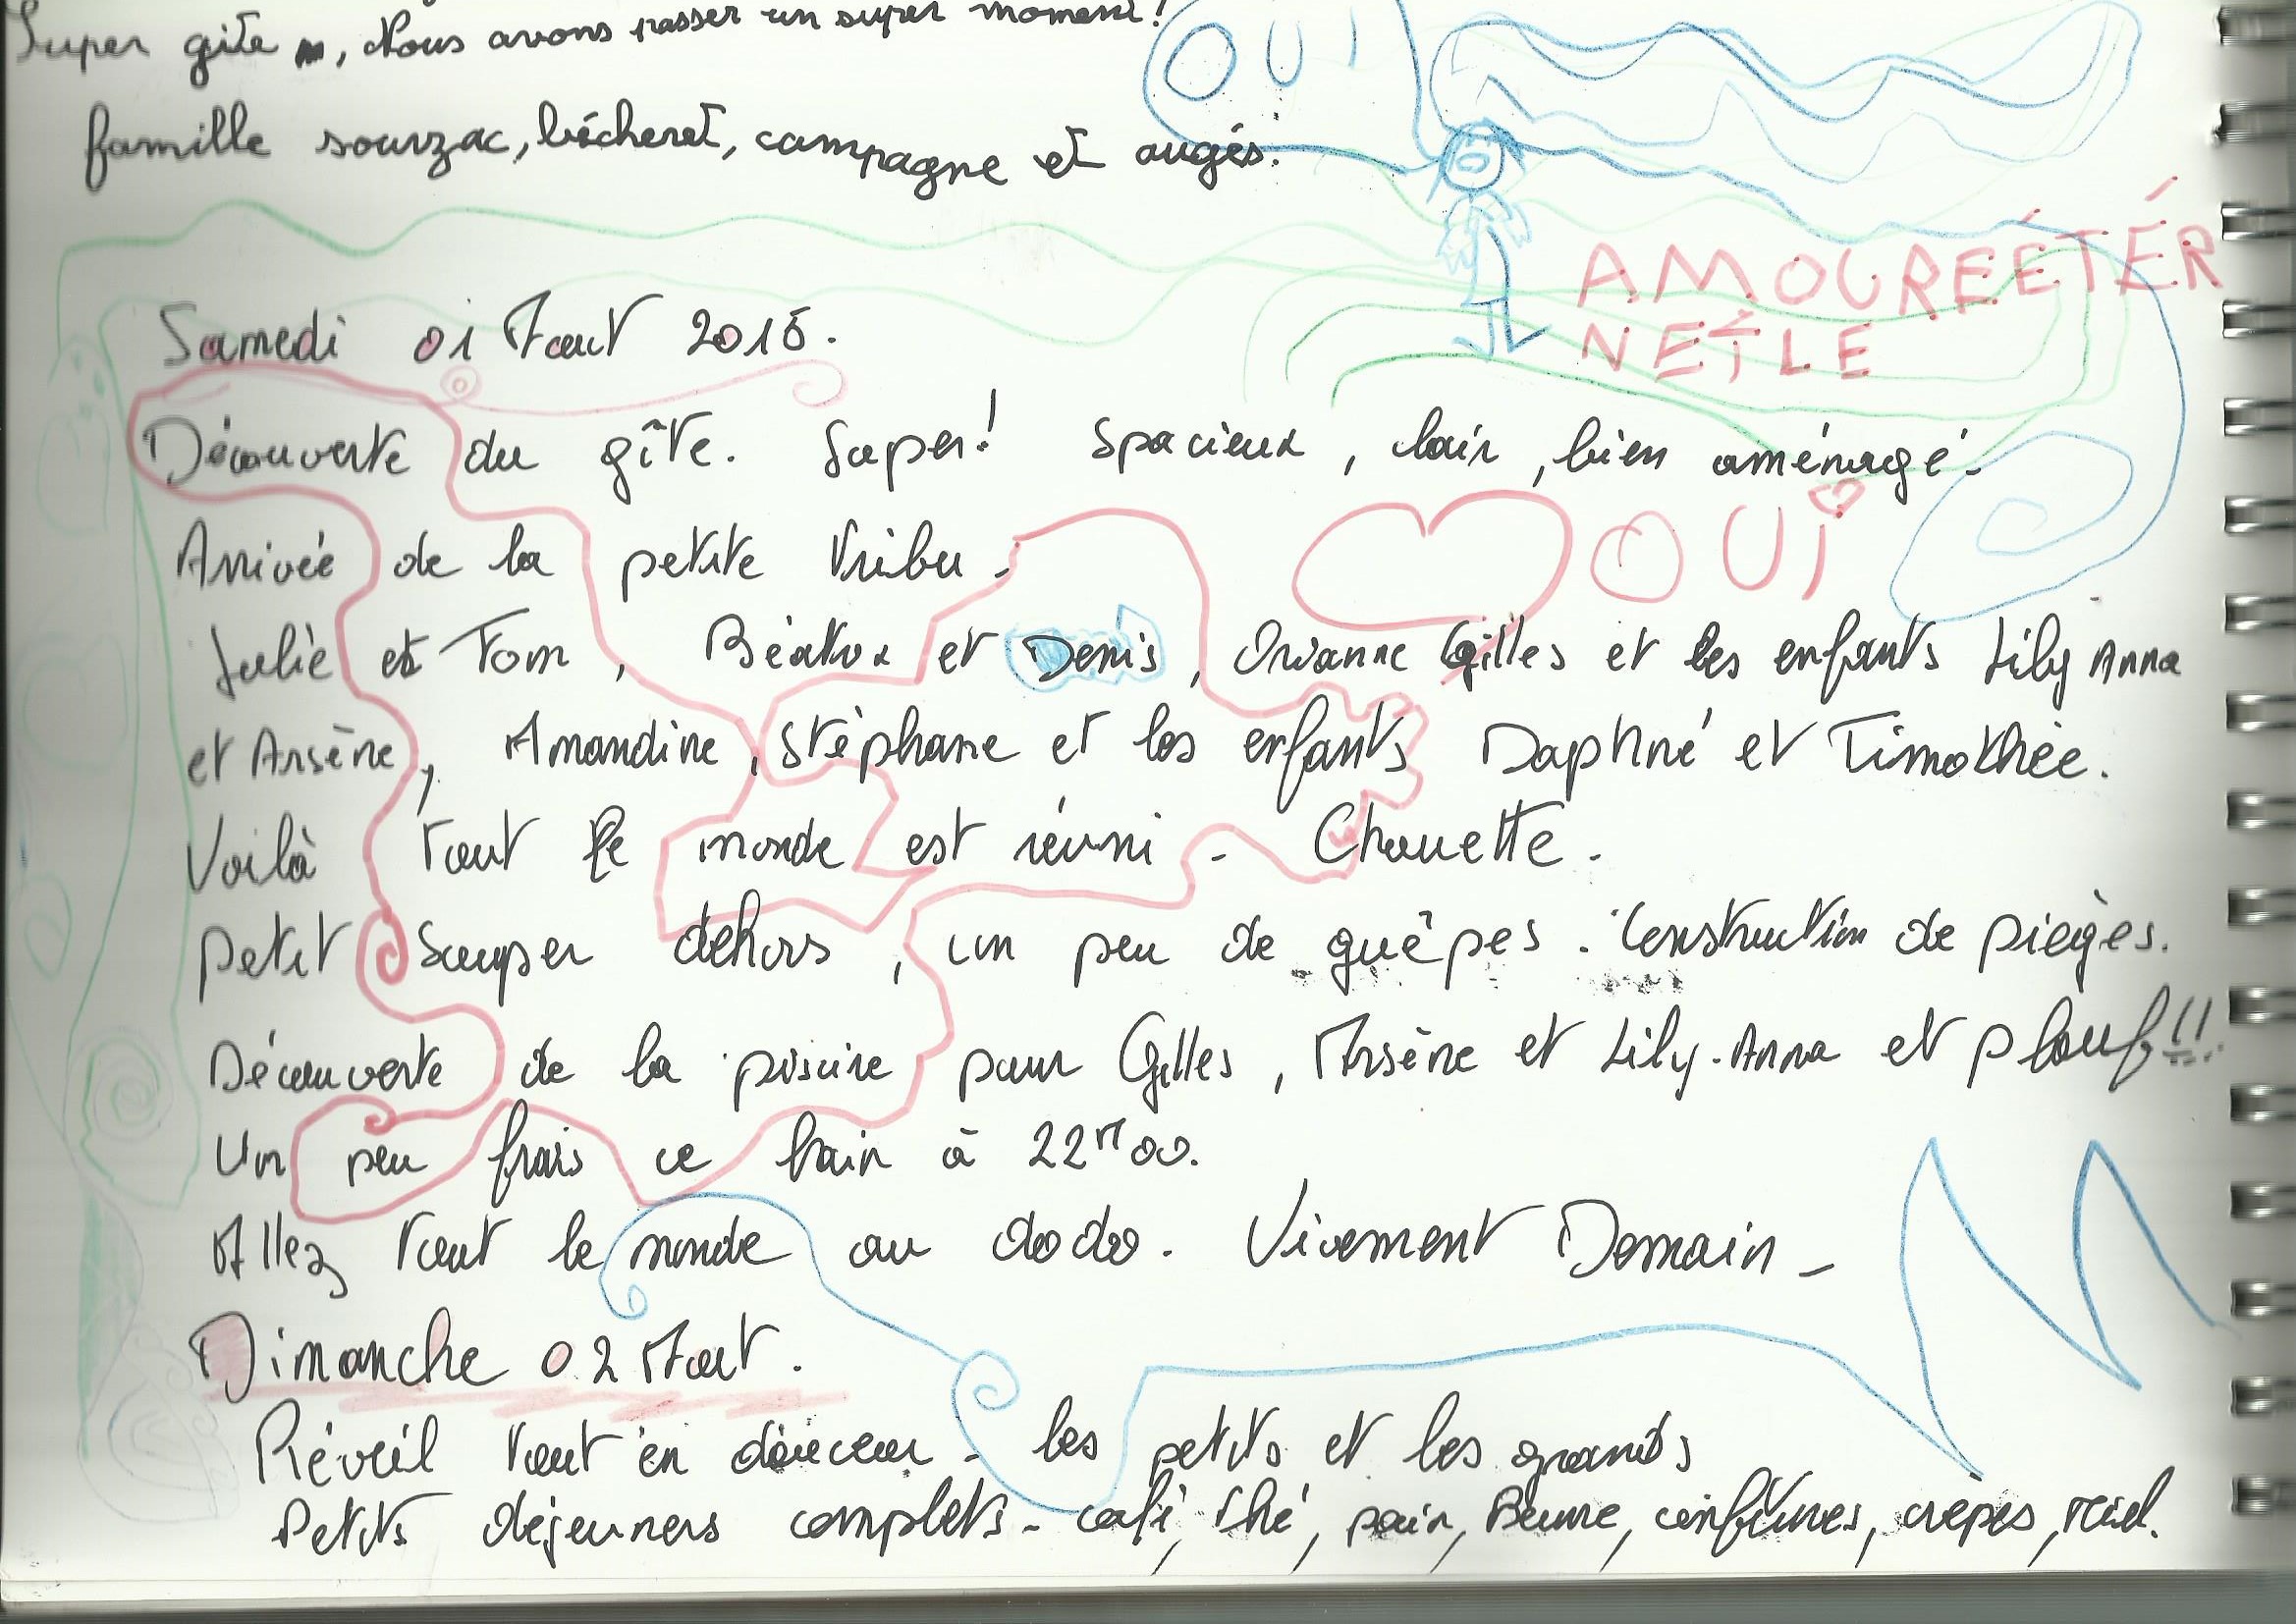 Super gîte, Nous avons passer un super moment!
famille sourzac, bécheret, campagne et augés.
OUI
AMOUREÉTÉR
NETLE
Samedi 01 Aout 2015.
Découverte du gîte. Super! Spacieux, clair, bien aménagé.
OUi
Arrivée de la petite tribu.
Julie et Tom, Béatrix et Denis, Orianne Gilles et les enfants Lily Anna
et Arsène, Amandine, Stéphane et les enfants Daphné et Timothée.
Voilà tout le monde est réuni - Chouette.
Petit Souper dehors, un peu de guêpes. Construction de pièges.
Découverte de la piscine pour Gilles, Arsène et Lily-Anna et plouf!!!
Un peu frais ce bain à 22H00.
Allez tout le monde au dodo. Vivement Demain -
Dimanche 02 Aout.
Réveil tout en douceur - les petits et les grands
Petits déjeuners complets - café, thé, pain, Beurre, confitures, crèpes, miel.